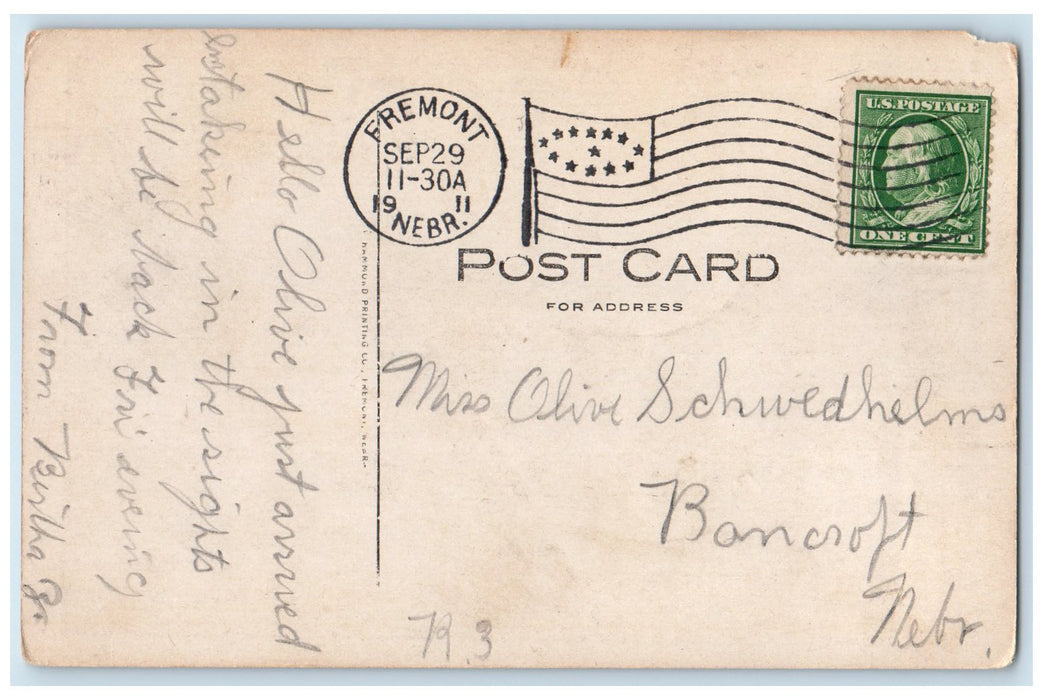 Hello Olive just arrived
intakeing in the sights
will be back Fri evening
From Birtha Jr.
FREMONT
SEP 29
11-30A
19 11
NEBR.
U.S. POSTAGE
ONE CENT
POST CARD
FOR ADDRESS
HAMMOND PRINTING CO., FREMONT, NEBR.
Miss Olive Schwedhelms
Bancroft
Nebr.
R. 3